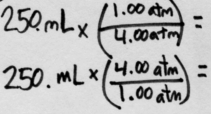 250.mL × (1.00 atm / 4.00 atm) =
250. mL × (4.00 atm / 1.00 atm) =